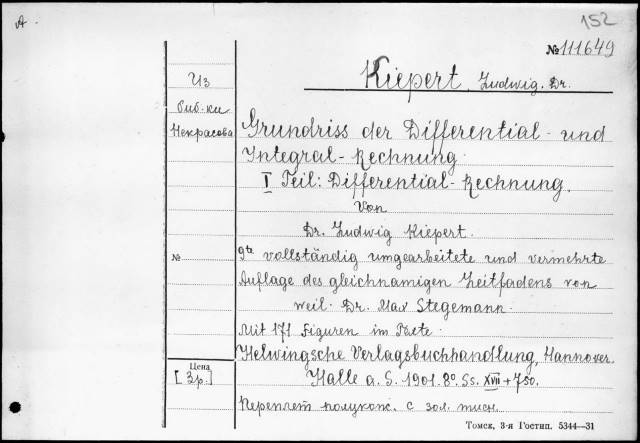 A
152
№111649
Kiepert, Ludwig. Dr.
Из
биб-ки
Некрасова
Grundriss der Differential- und
Integral-Rechnung.
I Teil: Differential-Rechnung.
Von
Dr. Ludwig Kiepert.
№
9te vollständig umgearbeitete und vermehrte
Auflage des gleichnamigen Leitfadens von
weil. Dr. Max Stegemann.
Mit 171 Figuren im Texte.
Helwingsche Verlagsbuchhandlung, Hannover.
Цена
[3р.]
Halle a. S. 1901. 8º. Ss. XVII + 750.
Переплет полукож. с зол. тисн.
Томск, 3-я Гостип. 5344—31